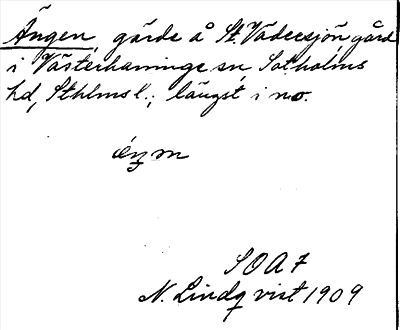 Ängen, gärde å St. Vädersjön gård
i Västerhaninge sn, Sotholms
hd, Sthlms l.; längst i no.
SOA 7
N. Lindqvist 1909